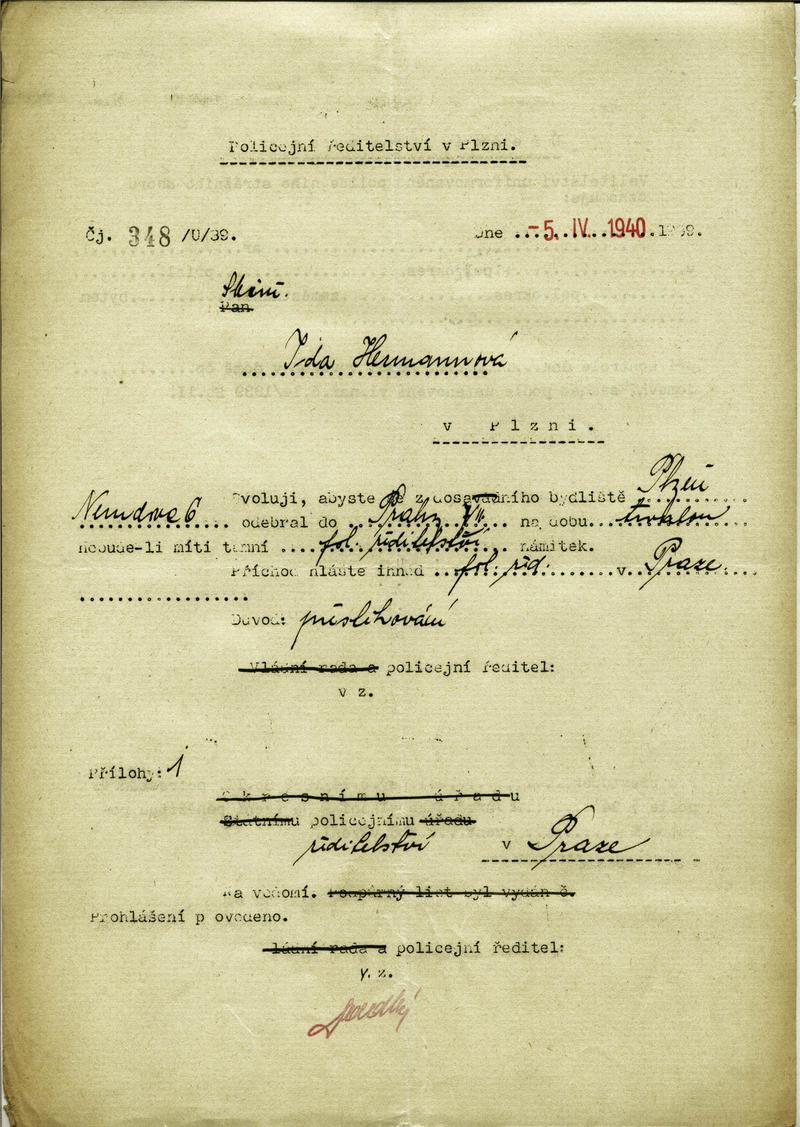 Policejní ředitelství v Plzni.
Čj. 348 /U/39. Dne ..-5. IV. 1940.1939.
Pan.
Ida Hermannová
v Plzni.
Plzeň
Svoluji, abyste se z dosavadního bydliště
odebral do Prahy VII. na dobu trvalou
nebude-li míti tamní pol. ředitelství námitek.
Příchod hlaste ihned pol. řed. v Praze.
Důvod: přestěhování
Vládní rada a policejní ředitel:
v z.
Přílohy: 1
Okresnímu úřadu
Státnímu policejnímu úřadu
ředitelství v Praze
Na vědomí. Podpůrný list byl vydán č.
Prohlášení p ovedeno.
ládní rada a policejní ředitel:
v. z.